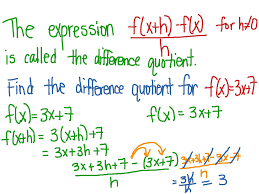 The expression f(x+h) - f(x) / h for h≠0
is called the difference quotient.
Find the difference quotient for f(x)=3x+7
f(x)= 3x+7
f(x) = 3x+7
f(x+h) = 3(x+h)+7
= 3x+3h+7
3x+3h+7 - (3x+7) / h
= 3x+3h+7-3x-7 / h
= 3h / h = 3